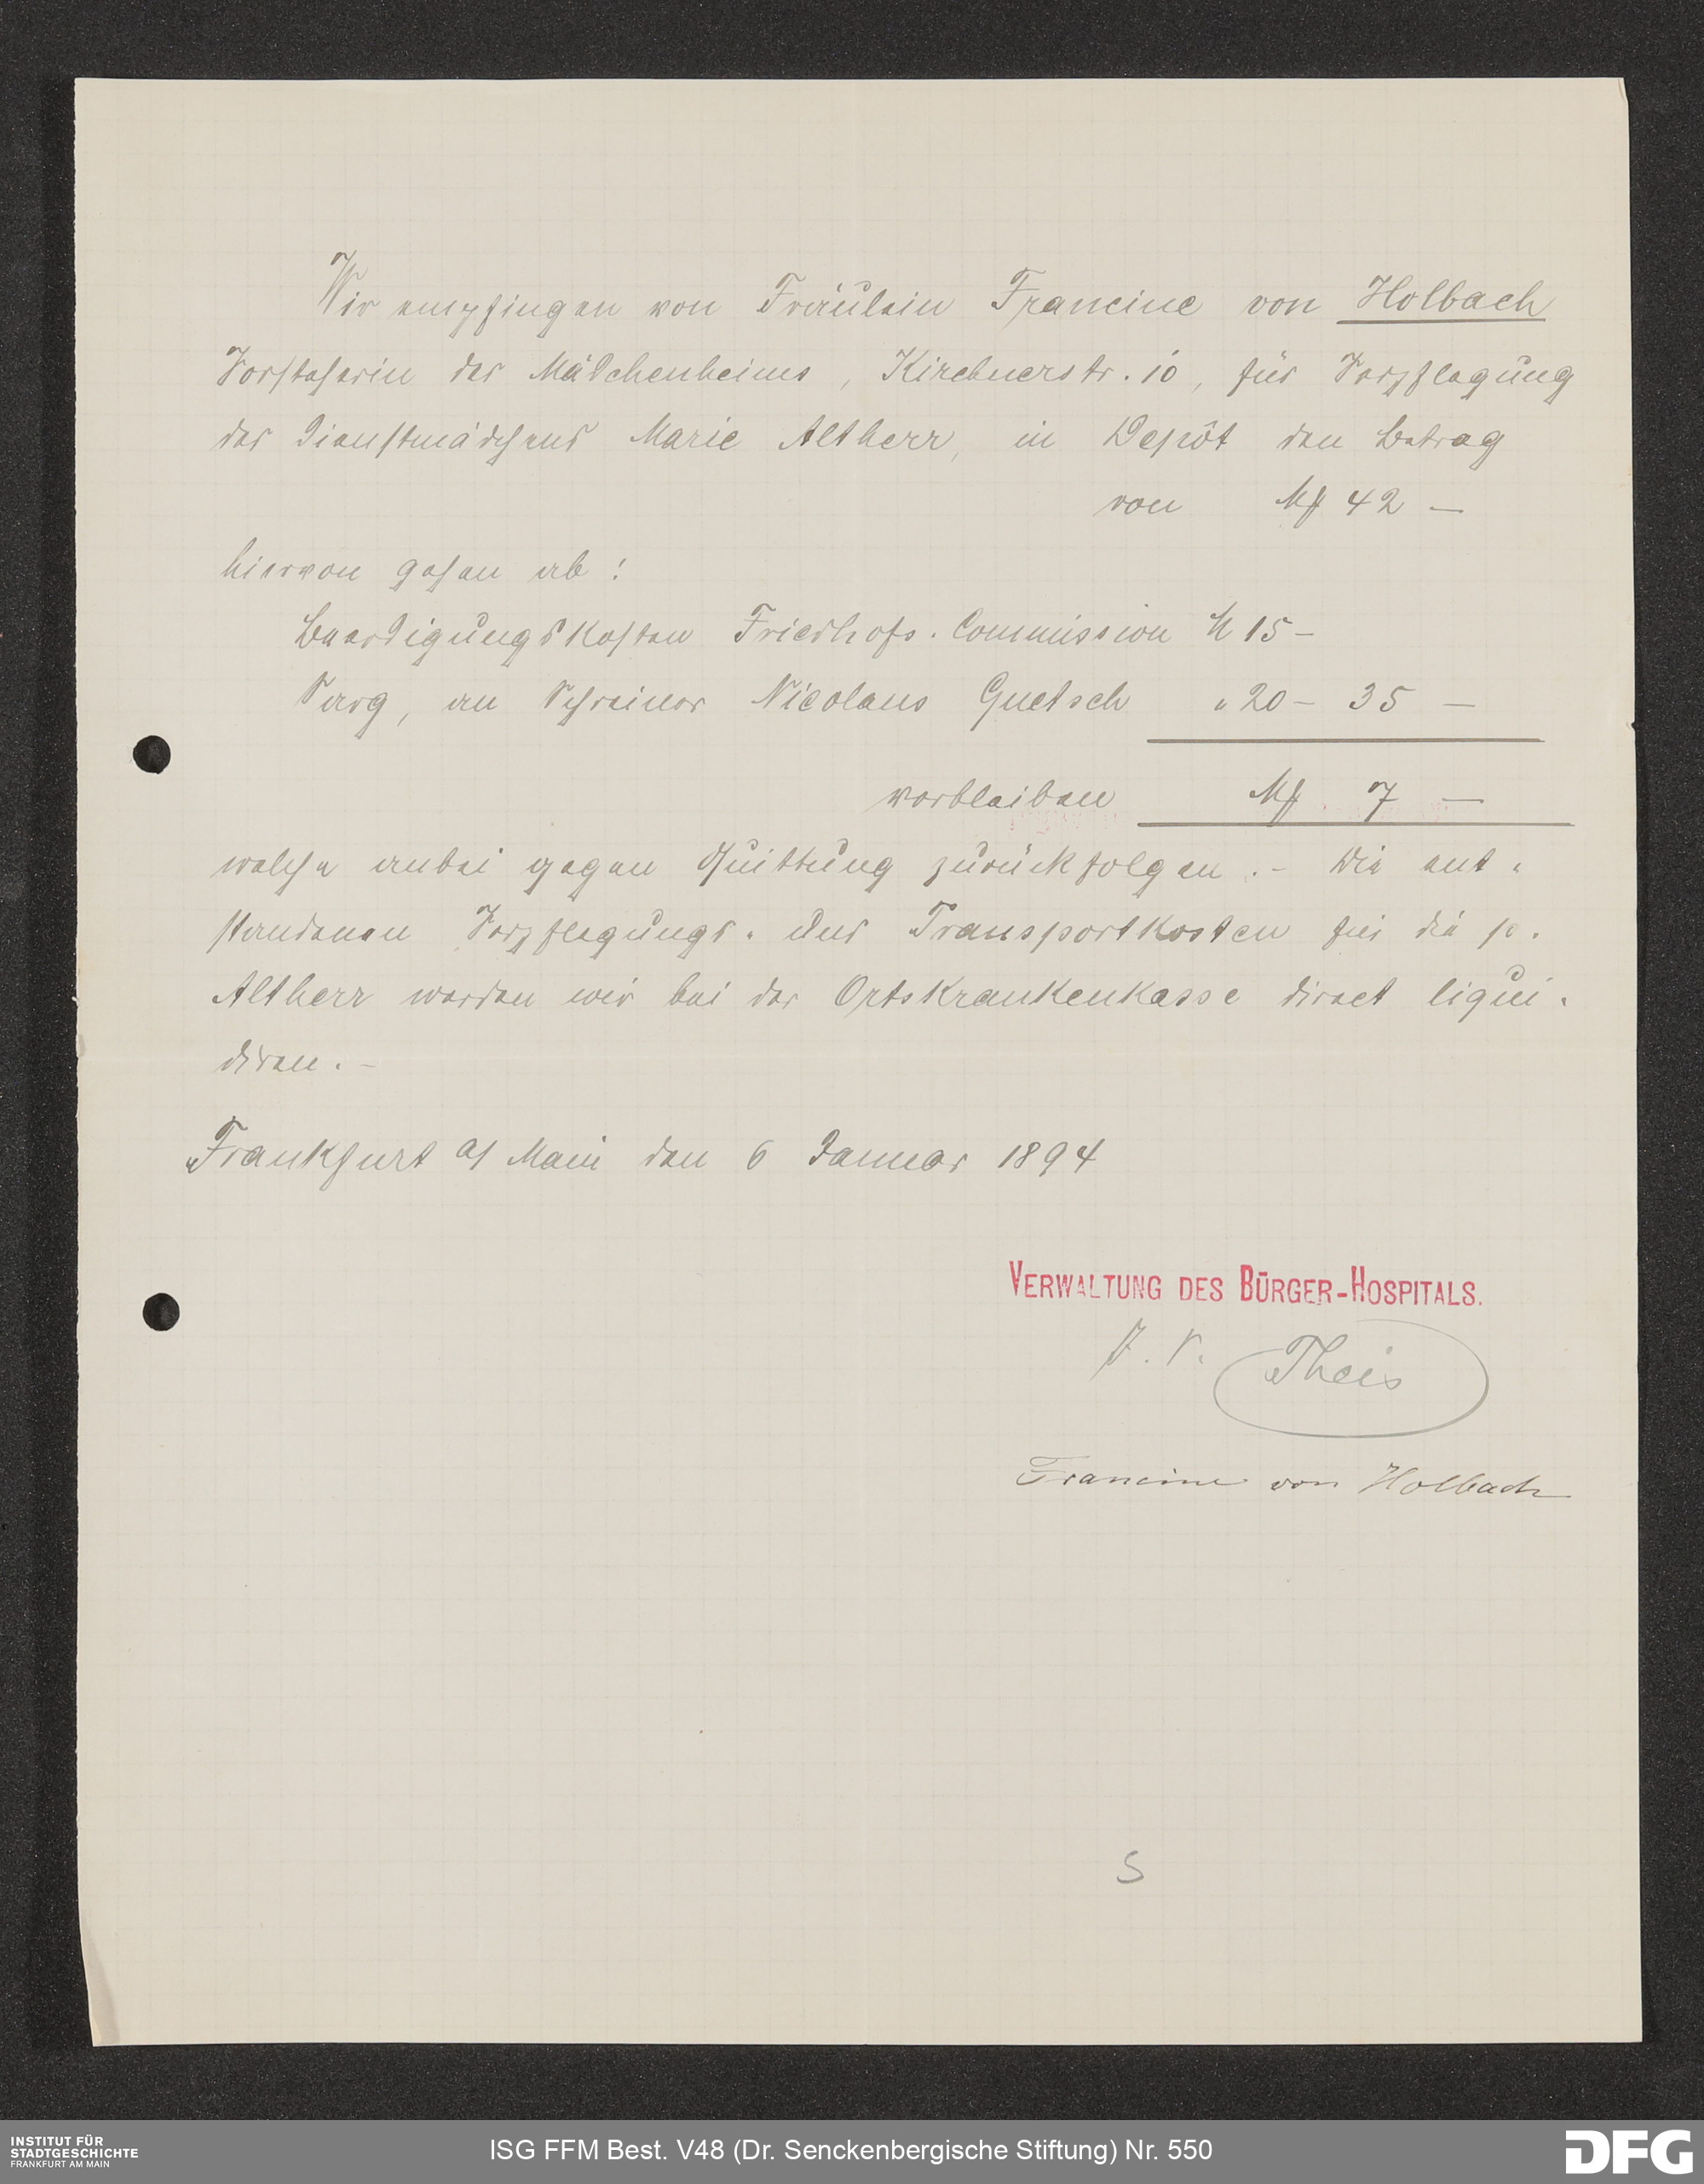 Wir empfingen von Fräulein Francine von Holbach
Vorsteherin des Mädchenheims, Kirchnerstr. 10, für Verpflegung
des Dienstmädchens Marie Altherr, in Depôt den Betrag
von Mk 42 —
hiervon gehen ab:
Beerdigungskosten Friedhofs-Commission M 15 –
Sarg, an Schreiner Nicolaus Guetsch " 20 – 35 —
verbleiben Mk 7 —
welche anbei gegen Quittung zurückfolgen. – Die ent-
standenen Verpflegungs- und Transportkosten für die p.
Altherr werden wir bei der Ortskrankenkasse direct liqui-
diren. –
Frankfurt a/ Main den 6 Januar 1894
VERWALTUNG DES BÜRGER-HOSPITALS.
J. V. Theis
Francine von Holbach
S
INSTITUT FÜR
STADTGESCHICHTE
FRANKFURT AM MAIN
ISG FFM Best. V48 (Dr. Senckenbergische Stiftung) Nr. 550
DFG